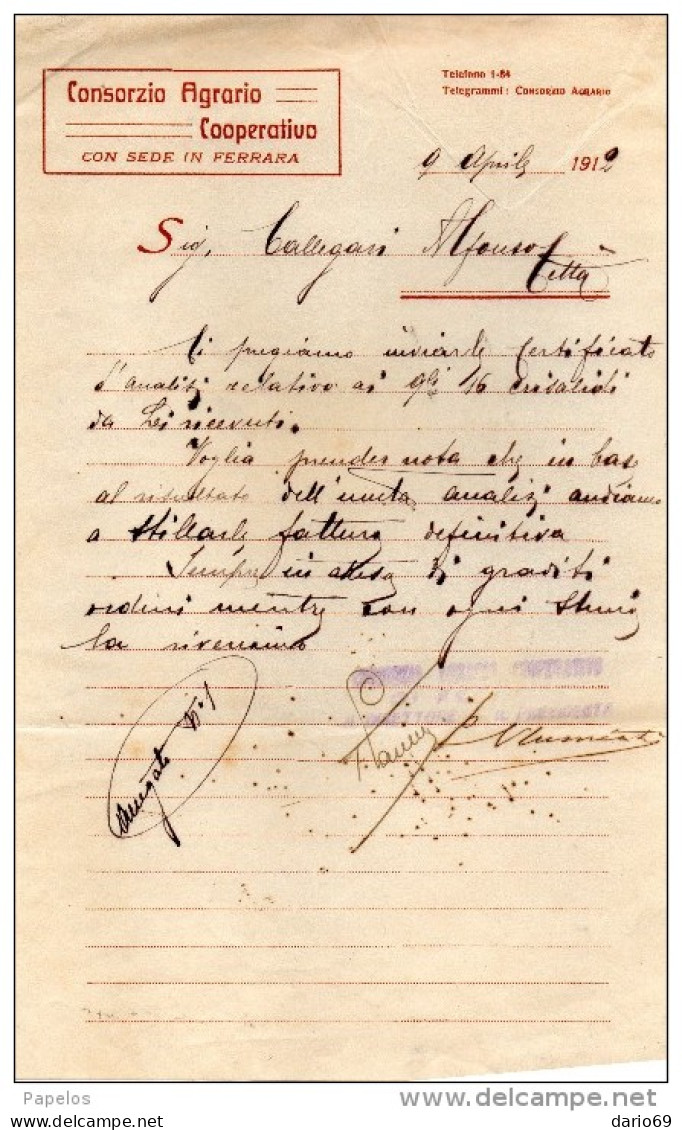 Consorzio Agrario
Cooperativo
CON SEDE IN FERRARA
Telefono 1-84
Telegrammi: CONSORZIO AGRARIO
9 Aprile 1912
Sig. Callegari Alfonso
Città
Ci pregiamo inviarle certificato
d'analisi relativo ai gli 16 crisalidi
da Lei ricevuti.
Voglia prender nota che in base
al risultato dell'unita analisi andiamo
a stillarle fattura definitiva
Sempre in attesa di graditi
ordini mentre con ogni stima
la riveriamo
Allegato N° 1
Papelos
www.delcampe.net
dario69